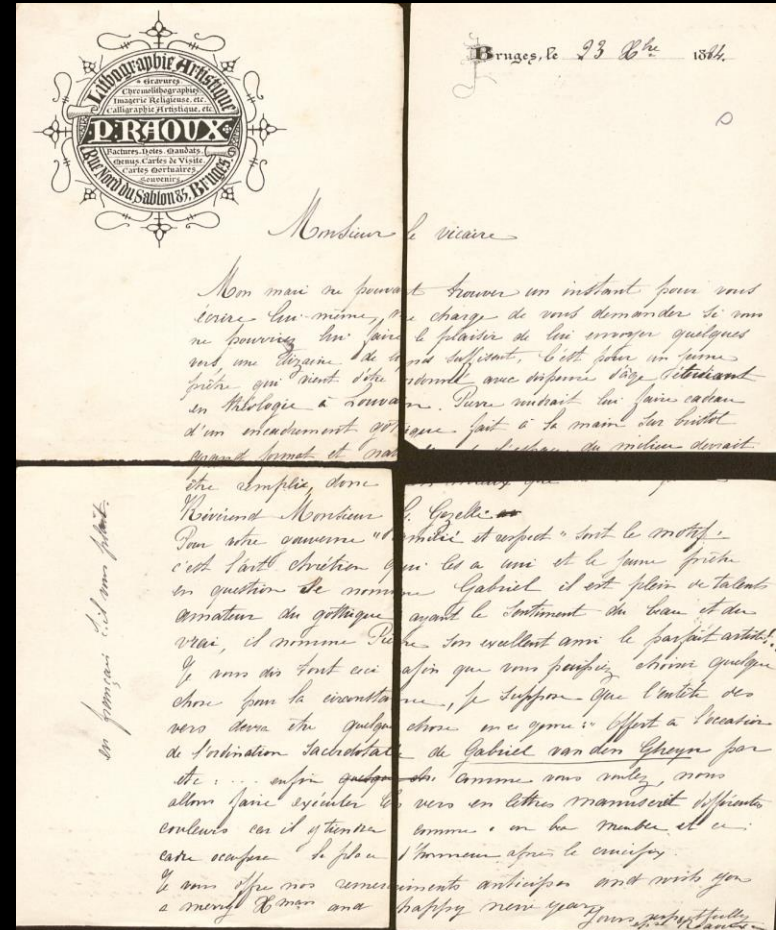 Lithographie Artistique
Gravures
Chromolithographies
Imagerie Religieuse, etc.
Calligraphie Artistique, etc.
P. RAOUX
Factures. Notes. Mandats.
Menus. Cartes de Visite
Cartes Mortuaires
Souvenirs.
Rue Nord du Sablon 85, Bruges
Bruges, le 23 Xbre 1884.
Monsieur le vicaire
Mon mari ne pouvant trouver un instant pour vous
écrire lui-même, me charge de vous demander si vous
ne pourriez lui faire le plaisir de lui envoyer quelques
vers, une dizaine de suffisent, c'est pour un jeune
prêtre qui vient d'être ordonné avec dispense d'âge étudiant
en théologie à Louvain. Pierre voudrait lui faire cadeau
d'un encadrement gothique fait à la main sur bristol
grand format et du milieu devrait
être remplie, donc que
Révérend Monsieur G. Gezelle
Pour votre gouverne "Amitié et respect" sont le motif.
c'est l'art chrétien qui les a uni et le jeune prêtre
en question se nomme Gabriel il est plein de talents
amateur du gothique ayant le sentiment du beau et du
vrai, il nomme Pierre son excellent ami le parfait artiste!
Je vous dis tout ceci afin que vous puissiez choisir quelque
chose pour la circonstance, je suppose que l'entête des
vers devra être quelque chose en ce genre: "Offert à l'occasion
de l'ordination Sacerdotale de Gabriel van den Gheyn par
etc: ... enfin comme vous voulez, nous
allons faire exécuter les vers en lettres manuscrit différentes
couleurs car il y tiendra comme à un meuble et ce
cadre occupera la place d'honneur après le crucifix.
Je vous offre nos remerciments anticipés and wish you
a merry Xmas and happy new year.
Yours respectfully
Raoux
en français s'il vous plait.